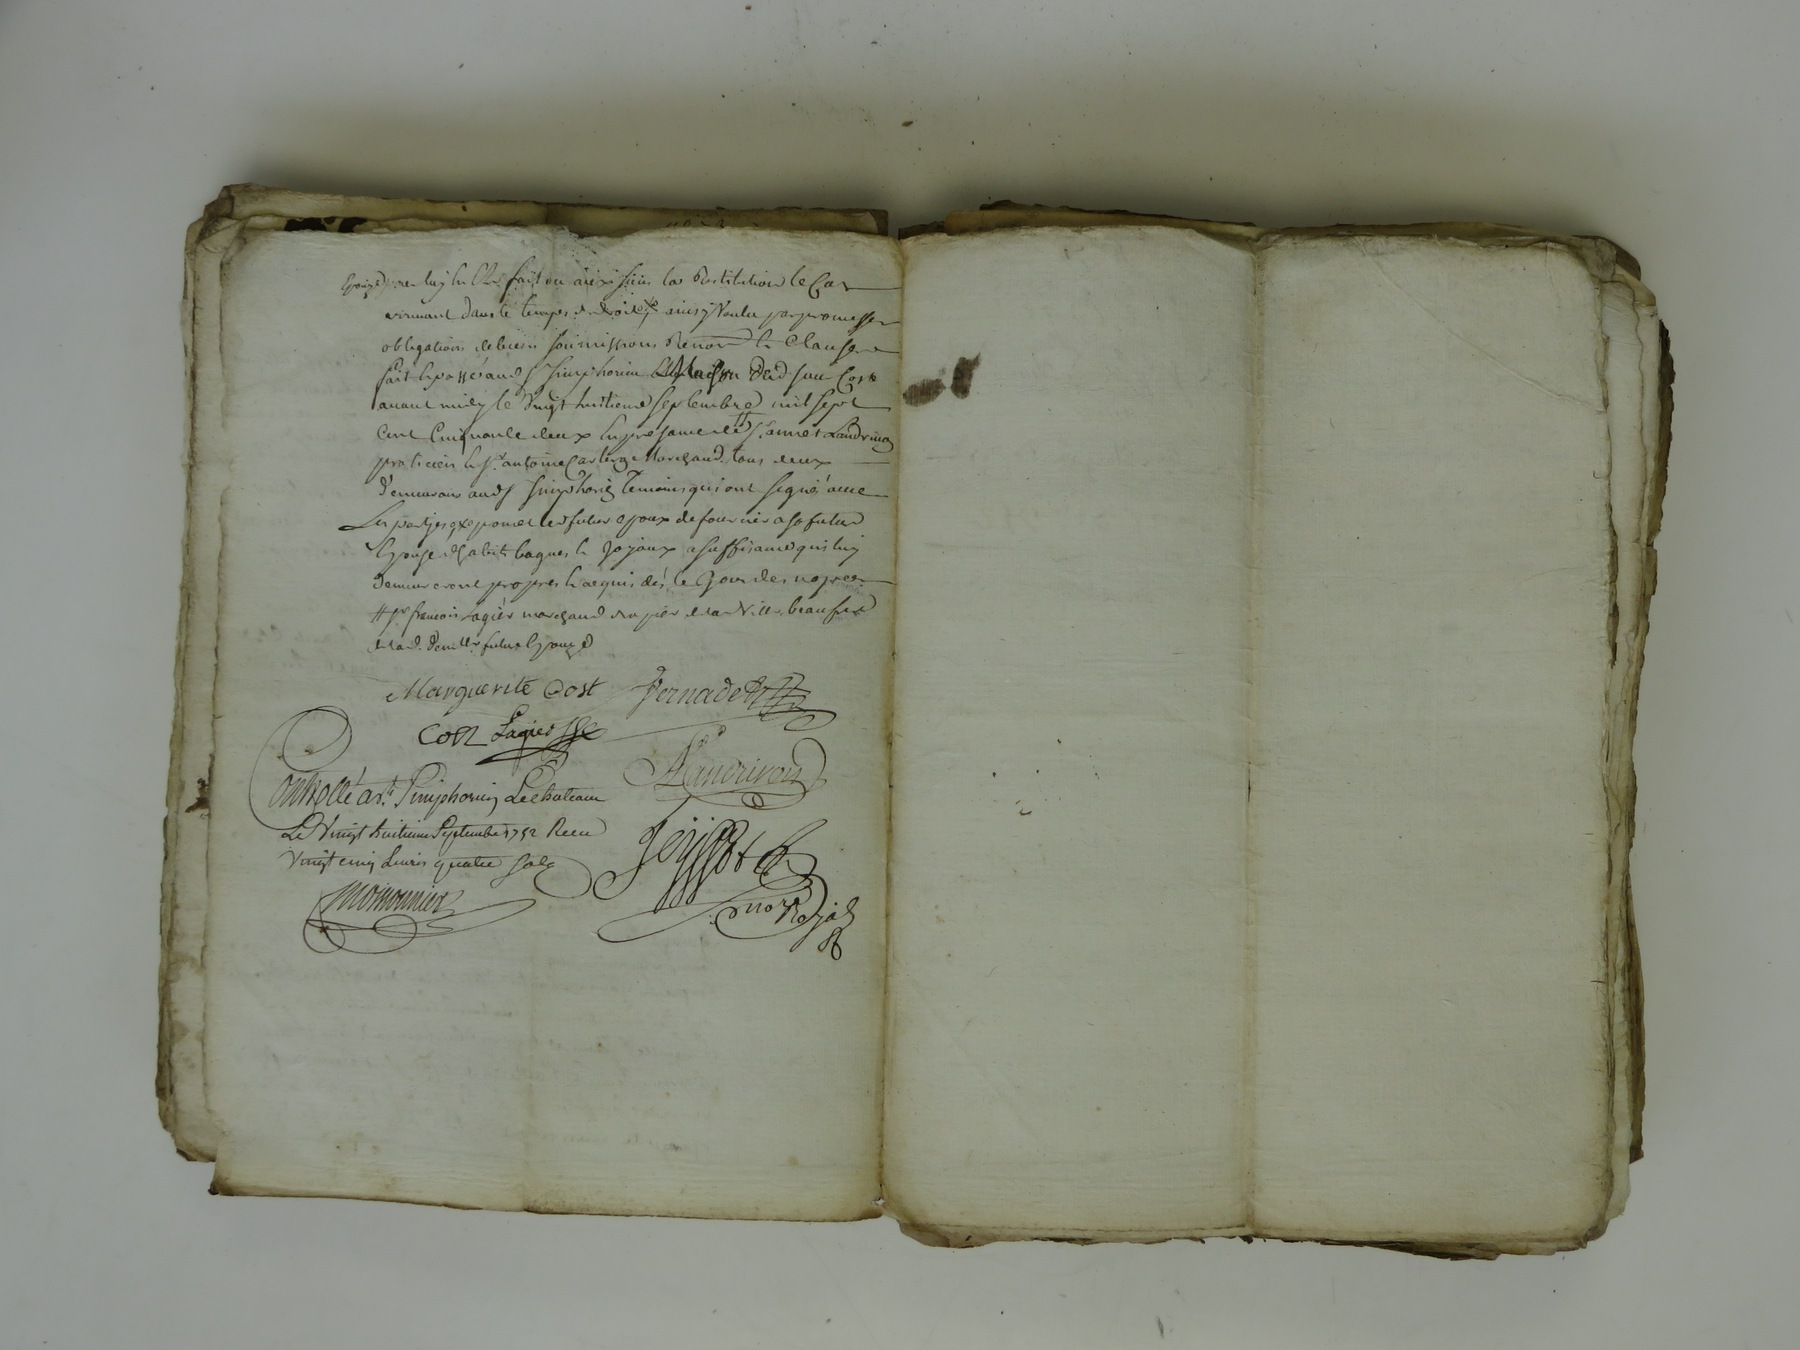 Epouze par luy en etre fait ou aux siens la Restitution le Cas
avenant dans le temps de droit ainsy Voulu par promesse
obligations de biens soumissions Renon et Clauses
fait et passé aud St Simphorien Maison dud sieur Cost
avant midy le Vingt huitieme septembre mil sept
Cent Cinquante deux En presance de Sr annet Landrivon
praticien et Sr antoine Marchand tous deux
demeurans aud St Simphorien temoins qui ont signé avec
Les parties promet led futur epoux de fournir a sa future
Epouse d'habits bagues et Joyaux a suffisance qui luy
demeureront propres et acquis dès le Jour des nopces
# Sr françois Lagier marchand de lad Ville beaufrere
de lad Demlle future Epouze
Marguerite Cost Bernade
Cost Lagier
Landrivon
Controllé a St Simphorien Le Chateau
Le Vingt huitieme Septembre 1752 Receu
Vingt cinq Livres quatre sols
Jeyssot
nore Royal